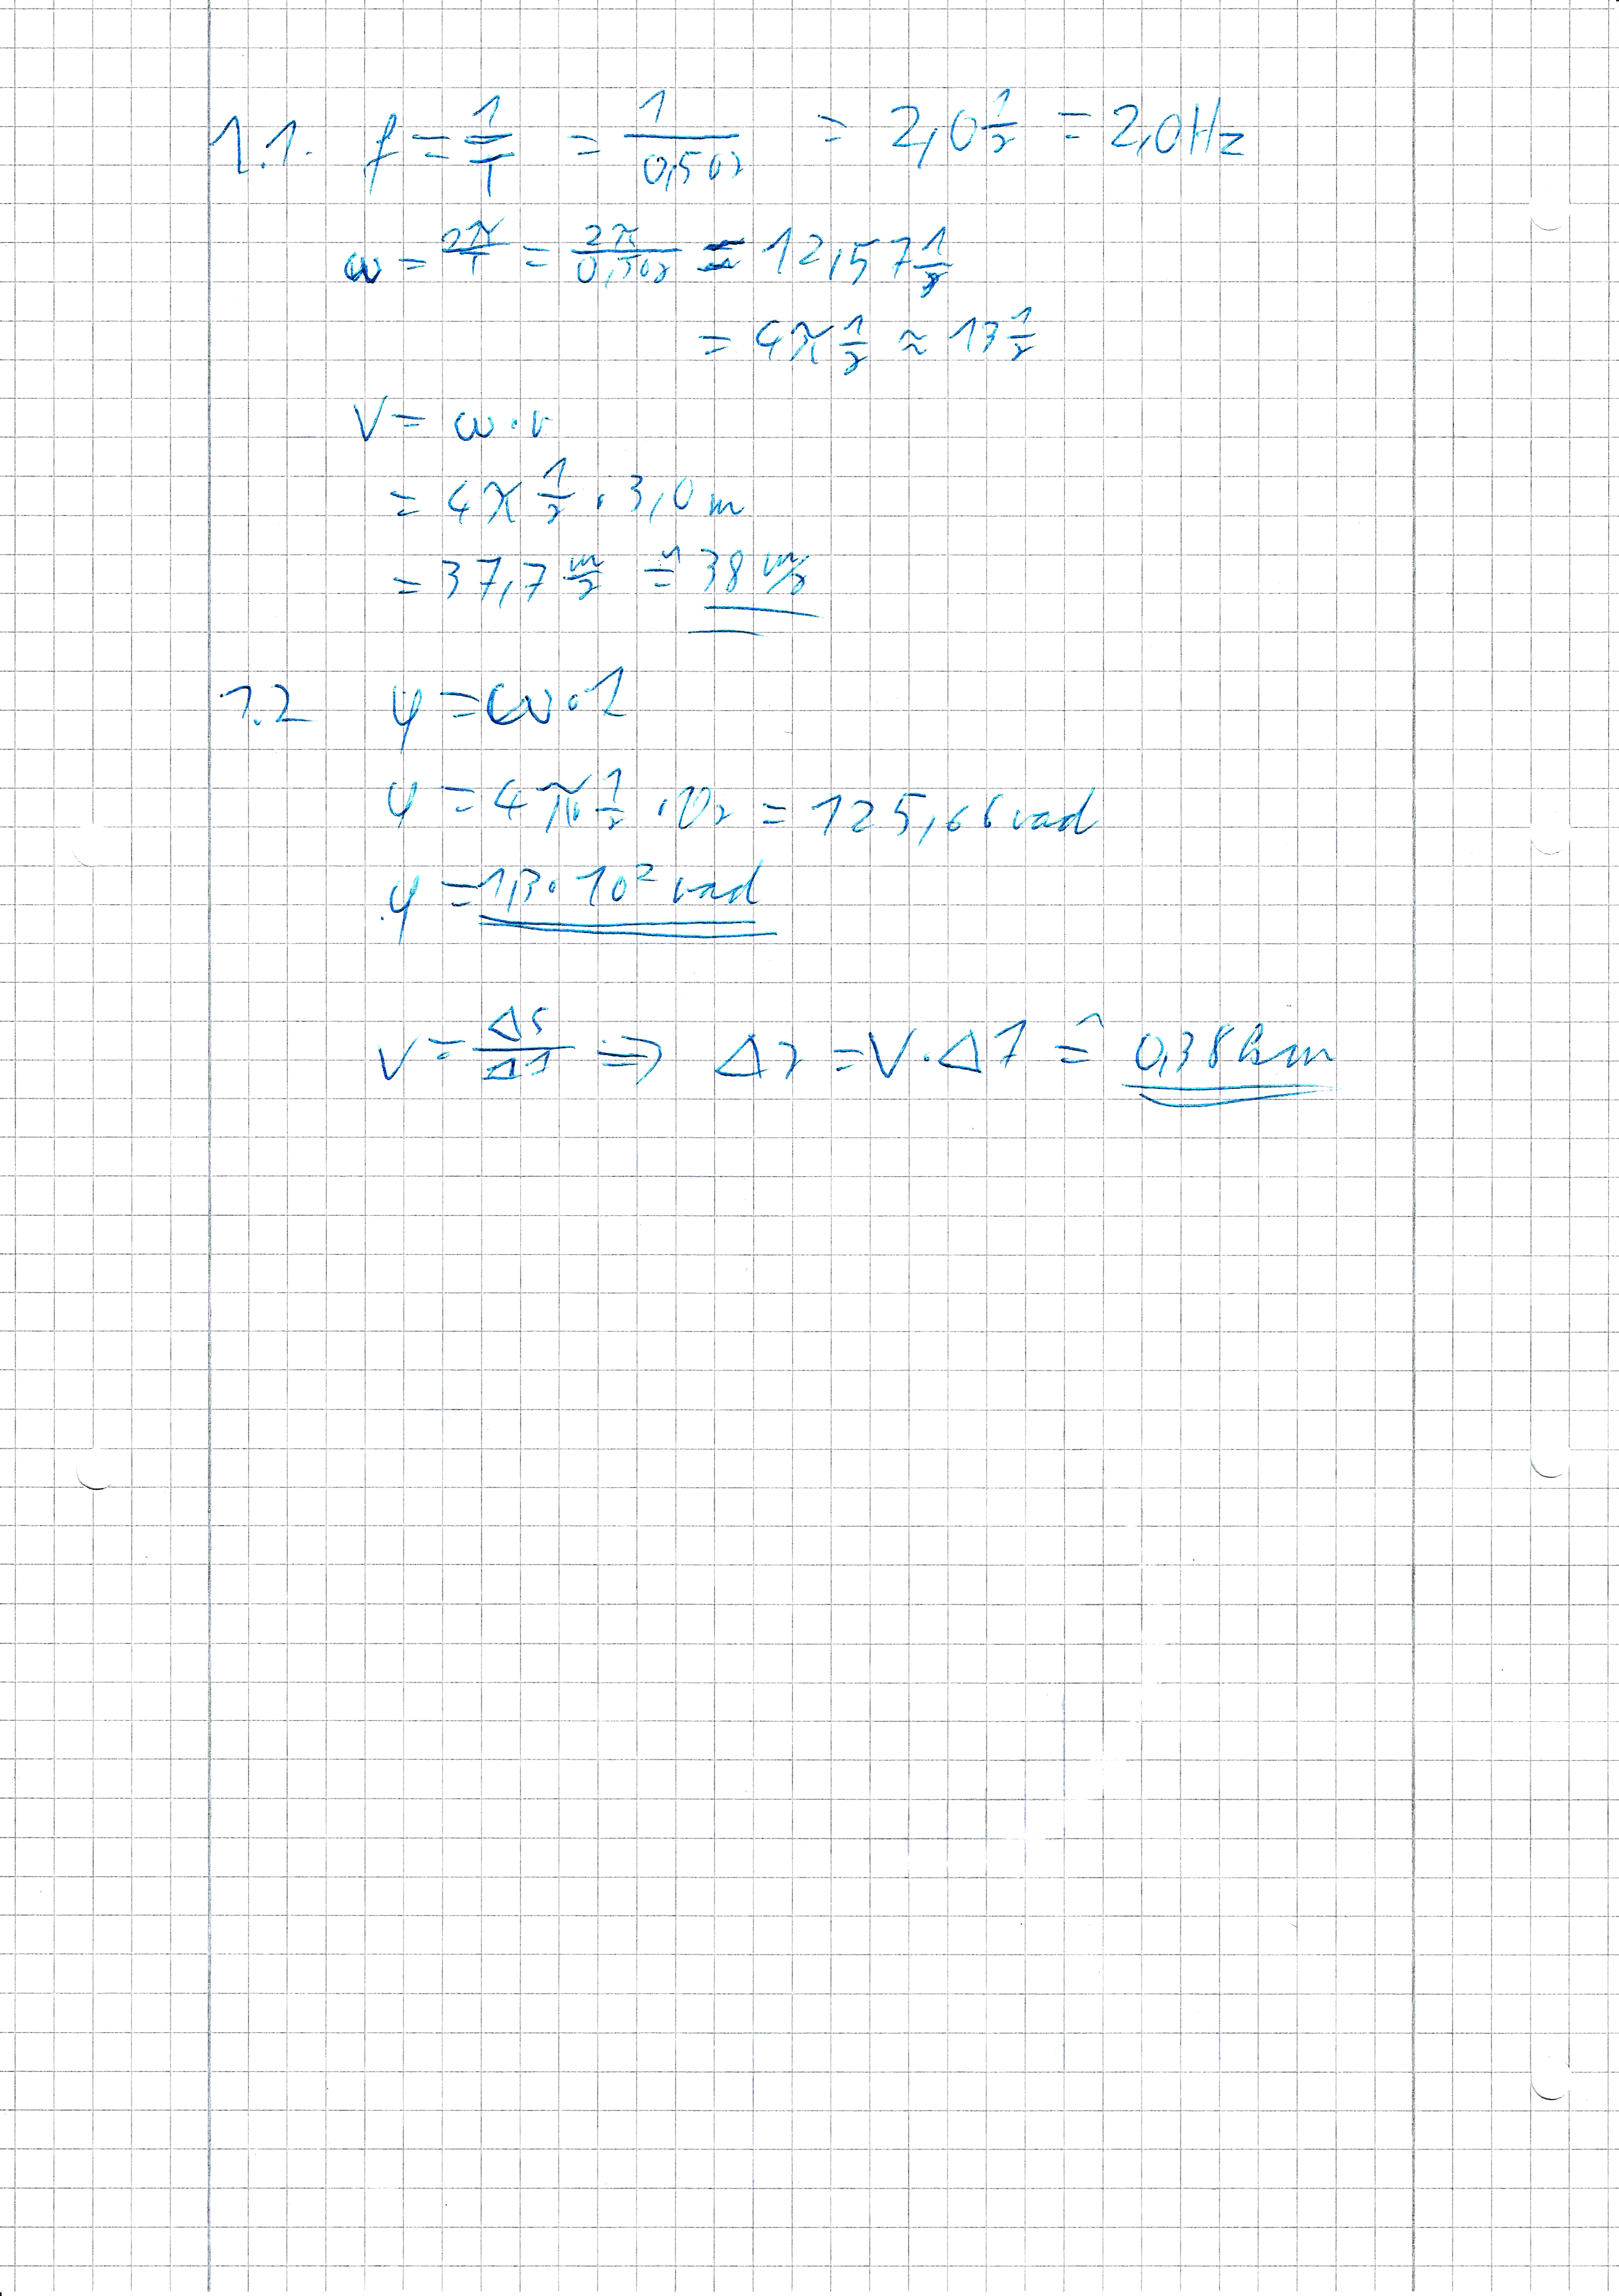 1.1. f = 1/T = 1/0,50s = 2,0 1/s = 2,0 Hz
ω = 2π/T = 2π/0,50s = 12,57 1/s
= 4π 1/s ≈ 13 1/s
V = ω · r
= 4π 1/s · 3,0 m
= 37,7 m/s = 38 m/s
1.2 φ = ω · t
φ = 4π 1/s · 10s = 125,66 rad
φ = 1,3 · 10² rad
V = Δs/Δt ⇒ Δs = V · Δt ≙ 0,38 km